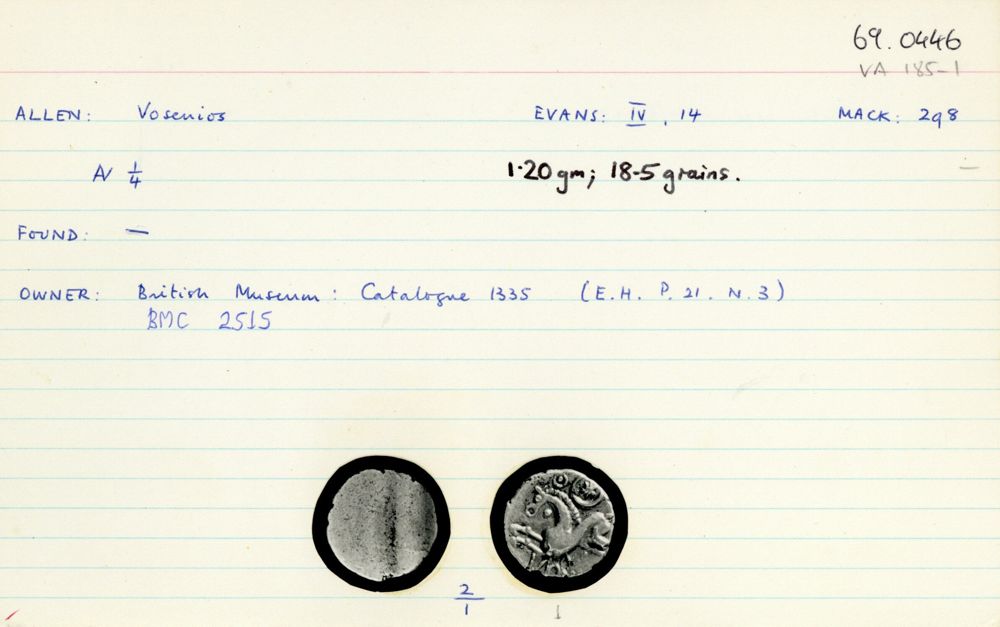 69.0446
VA 185-1
ALLEN: Vosenios EVANS: IV, 14 MACK: 298
AV 1/4 1.20 gm; 18.5 grains.
FOUND: —
OWNER: British Museum: Catalogue 1335 (E.H. P. 21. N. 3)
BMC 2515
2/1 1